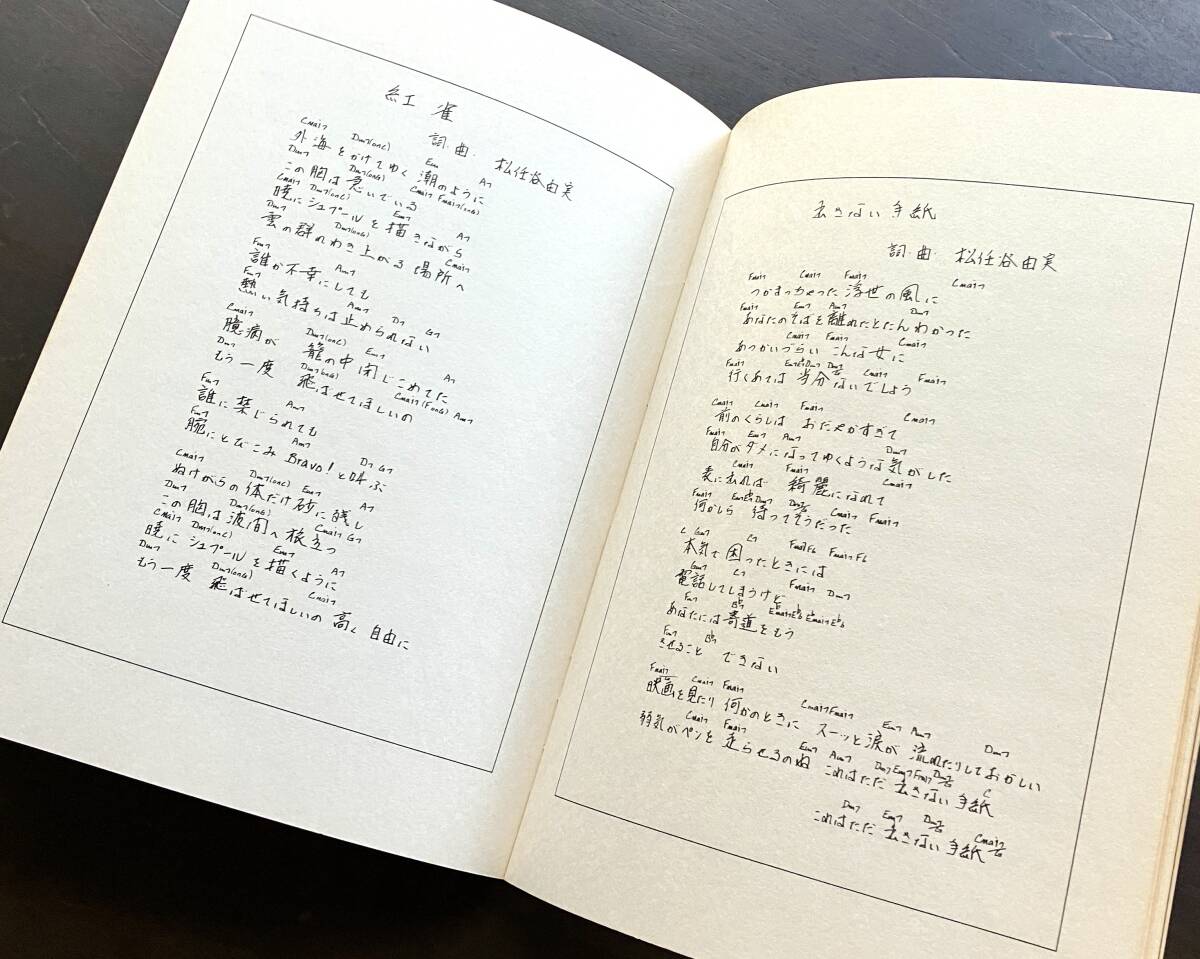 紅雀
詞・曲・松任谷由実
Cmaj7 Dm7(onC) Em7 A7
外海をかけてゆく 潮のように
Dm7 Dm7(onG) Cmaj7 Fmaj7(onG)
この胸は急いでいる
Cmaj7 Dm7(onC) Em7 A7
暁にシュプールを描きながら
Dm7 Dm7(onG) Cmaj7
雲の群れわき上がる場所へ
Fm7 Am7
誰か不幸にしても
Fm7 Am7 D7 G7
熱い気持ちは止められない
Cmaj7 Dm7(onC) Em7 A7
臆病が 籠の中 閉じこめてた
Dm7 Dm7(onG) Cmaj7(FonG) Am7
もう一度 飛ばせてほしいの
Fm7 Am7
誰に禁じられても
Fm7 Am7 D7 G7
腕にとびこみ Bravo!と叫ぶ
Cmaj7 Dm7(onC) Em7 A7
ぬけがらの体だけ砂に残し
Dm7 Dm7(onG) Cmaj7 G7
この胸は波間へ旅立つ
Cmaj7 Dm7(onC) Em7 A7
暁に シュプールを描くように
Dm7 Dm7(onG) Cmaj7
もう一度 飛ばせてほしいの 高く 自由に
出さない手紙
詞・曲・松任谷由実
Fmaj7 Cmaj7 Fmaj7 Cmaj7
つかまっちゃった 浮世の風に
Fmaj7 Em7 Am7 Dm7
あなたのそばを離れたとたんわかった
Cmaj7 Fmaj7 Cmaj7
あつかいづらい こんな女に
Fmaj7 Cmaj7 Fmaj7
行くあては 当分 ないでしょう
Cmaj7 Cmaj7 Fmaj7 Cmaj7
前のくらしは おだやかすぎて
Fmaj7 Em7 Am7 Dm7
自分がダメになってゆくような気がした
Cmaj7 Fmaj7 Cmaj7
表に出れば 綺麗になれて
Fmaj7 Cmaj7 Fmaj7
何かしら 待ってそうだった
本気で困ったときには
Gm7 C7 Fmaj7 Dm7
電話してしまうけど
あなたには寄道をもう
させること できない
Fmaj7 Cmaj7 Fmaj7 Cmaj7 Fmaj7 Em7 Am7 Dm7
映画を見たり 何かのときに スーッと涙が 流れたりしておかしい
Cmaj7 Fmaj7 Em7 Am7 Dm7 Em7 Fmaj7 C
弱気がペンを 走らせるのね これはただ 出さない手紙
Dm7 Em7 Cmaj7
これはただ 出さない手紙